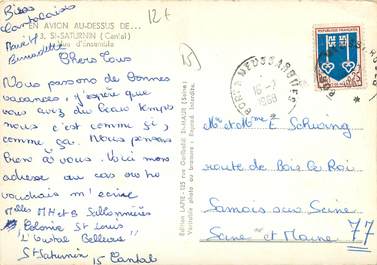 Bises
Cantaliennes
Bernadette
12F
EN AVION AU-DESSUS DE...
3. St-SATURNIN (Cantal)
Vue d'ensemble
15
Chers tous
Nous passons de bonnes
vacances, j'espère que
vous avez du beau temps
nous c'est comme ci,
comme ça. Nous pensons
bien à vous. Voici mon
adresse au cas ou tu
voudrais m'écrire
Melles MH et B
Colonie St Louis
St Saturnin 15 Cantal
Edition LAPIE - 125 rue Garibaldi St-MAUR (Seine)
Véritable photo au bromure - Reprod. interdite.
16-7
1966
REPUBLIQUE FRANÇAISE
0,25
Mr et Mme E. Schwing
route de Bois le Roi
Samois sur Seine
Seine et Marne 77